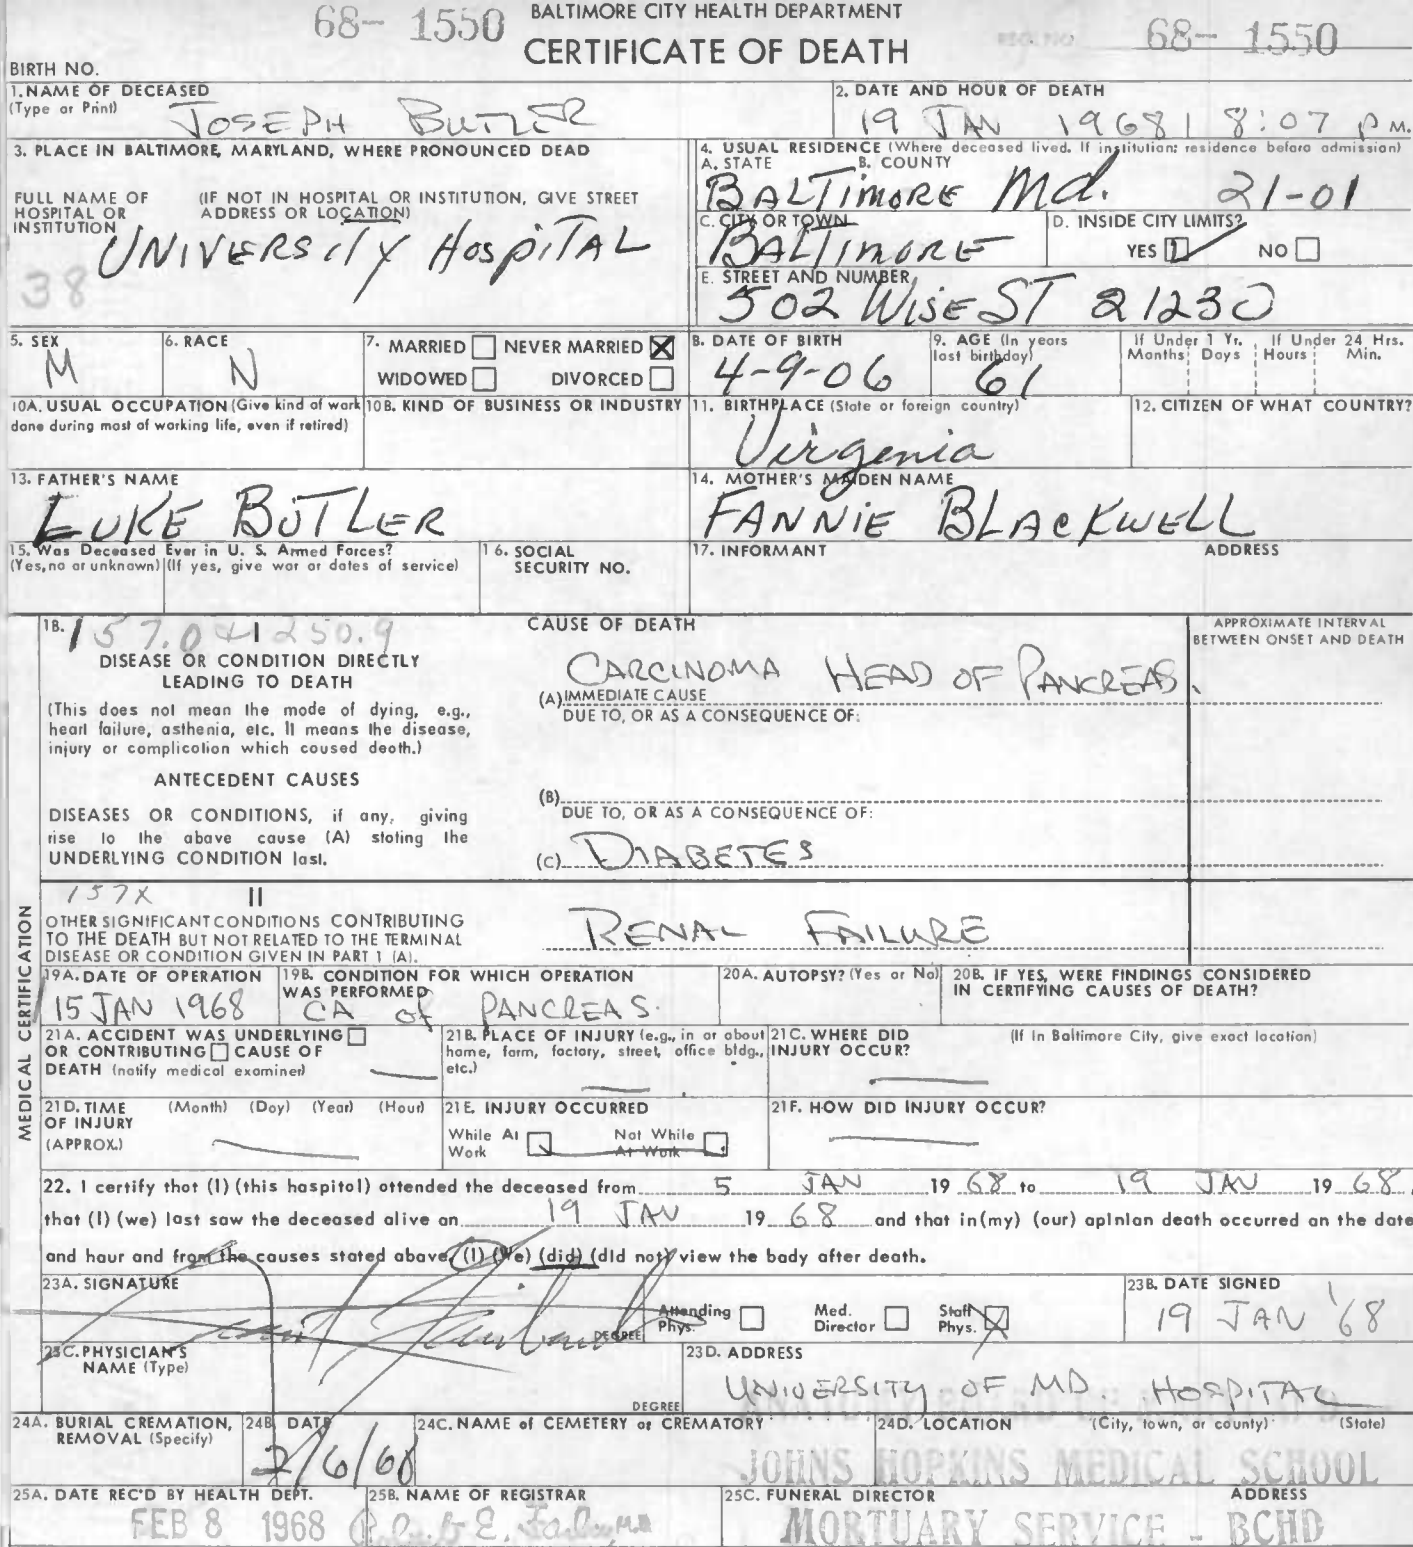 68- 1550
BALTIMORE CITY HEALTH DEPARTMENT
CERTIFICATE OF DEATH
REG. NO.
68- 1550
BIRTH NO.
1. NAME OF DECEASED
(Type or Print)
JOSEPH BUTLER
2. DATE AND HOUR OF DEATH
19 JAN 1968 | 8:07 P M.
3. PLACE IN BALTIMORE, MARYLAND, WHERE PRONOUNCED DEAD
FULL NAME OF HOSPITAL OR INSTITUTION
(IF NOT IN HOSPITAL OR INSTITUTION, GIVE STREET ADDRESS OR LOCATION)
UNIVERSITY HOSPITAL
38
4. USUAL RESIDENCE (Where deceased lived. If institution: residence before admission)
A. STATE B. COUNTY
BALTIMORE Md. 21-01
C. CITY OR TOWN
BALTIMORE
D. INSIDE CITY LIMITS?
YES NO
E. STREET AND NUMBER
502 WISE ST 21230
5. SEX
M
6. RACE
N
7. MARRIED NEVER MARRIED
WIDOWED DIVORCED
8. DATE OF BIRTH
4-9-06
9. AGE (In years last birthday)
61
If Under 1 Yr. If Under 24 Hrs.
Months Days Hours Min.
10A. USUAL OCCUPATION (Give kind of work done during most of working life, even if retired)
10B. KIND OF BUSINESS OR INDUSTRY
11. BIRTHPLACE (State or foreign country)
Virginia
12. CITIZEN OF WHAT COUNTRY?
13. FATHER'S NAME
LUKE BUTLER
14. MOTHER'S MAIDEN NAME
FANNIE BLACKWELL
15. Was Deceased Ever in U. S. Armed Forces?
(Yes, no or unknown) (If yes, give war or dates of service)
16. SOCIAL SECURITY NO.
17. INFORMANT ADDRESS
18.
157.0 250.9
I
DISEASE OR CONDITION DIRECTLY
LEADING TO DEATH
(This does not mean the mode of dying, e.g.,
heart failure, asthenia, etc. It means the disease,
injury or complication which caused death.)
ANTECEDENT CAUSES
DISEASES OR CONDITIONS, if any, giving
rise to the above cause (A) stating the
UNDERLYING CONDITION last.
CAUSE OF DEATH
CARCINOMA HEAD OF PANCREAS.
(A) IMMEDIATE CAUSE
DUE TO, OR AS A CONSEQUENCE OF:
(B)
DUE TO, OR AS A CONSEQUENCE OF:
(C) DIABETES
APPROXIMATE INTERVAL
BETWEEN ONSET AND DEATH
MEDICAL CERTIFICATION
157X
II
OTHER SIGNIFICANT CONDITIONS CONTRIBUTING
TO THE DEATH BUT NOT RELATED TO THE TERMINAL
DISEASE OR CONDITION GIVEN IN PART 1 (A).
RENAL FAILURE
19A. DATE OF OPERATION
15 JAN 1968
19B. CONDITION FOR WHICH OPERATION WAS PERFORMED
CA of PANCREAS.
20A. AUTOPSY? (Yes or No)
20B. IF YES, WERE FINDINGS CONSIDERED IN CERTIFYING CAUSES OF DEATH?
21A. ACCIDENT WAS UNDERLYING
OR CONTRIBUTING CAUSE OF
DEATH (notify medical examiner)
21B. PLACE OF INJURY (e.g., in or about
home, farm, factory, street, office bldg.,
etc.)
21C. WHERE DID INJURY OCCUR?
(If in Baltimore City, give exact location)
21D. TIME OF INJURY (APPROX.)
(Month) (Day) (Year) (Hour)
21E. INJURY OCCURRED
While At Work Not While At Work
21F. HOW DID INJURY OCCUR?
22. I certify that (I) (this hospital) attended the deceased from 5 JAN 19 68 to 19 JAN 19 68,
that (I) (we) last saw the deceased alive on 19 JAN 19 68 and that in (my) (our) opinion death occurred on the date
and hour and from the causes stated above. (I) (We) (did) (did not) view the body after death.
23A. SIGNATURE
DEGREE
Attending Phys. Med. Director Staff Phys.
23B. DATE SIGNED
19 JAN '68
23C. PHYSICIAN'S NAME (Type)
DEGREE
23D. ADDRESS
UNIVERSITY OF MD. HOSPITAL
24A. BURIAL CREMATION, REMOVAL (Specify)
24B. DATE
2/6/68
24C. NAME of CEMETERY or CREMATORY
24D. LOCATION (City, town, or county) (State)
JOHNS HOPKINS MEDICAL SCHOOL
25A. DATE REC'D BY HEALTH DEPT.
FEB 8 1968
25B. NAME OF REGISTRAR
25C. FUNERAL DIRECTOR ADDRESS
MORTUARY SERVICE - BCHD